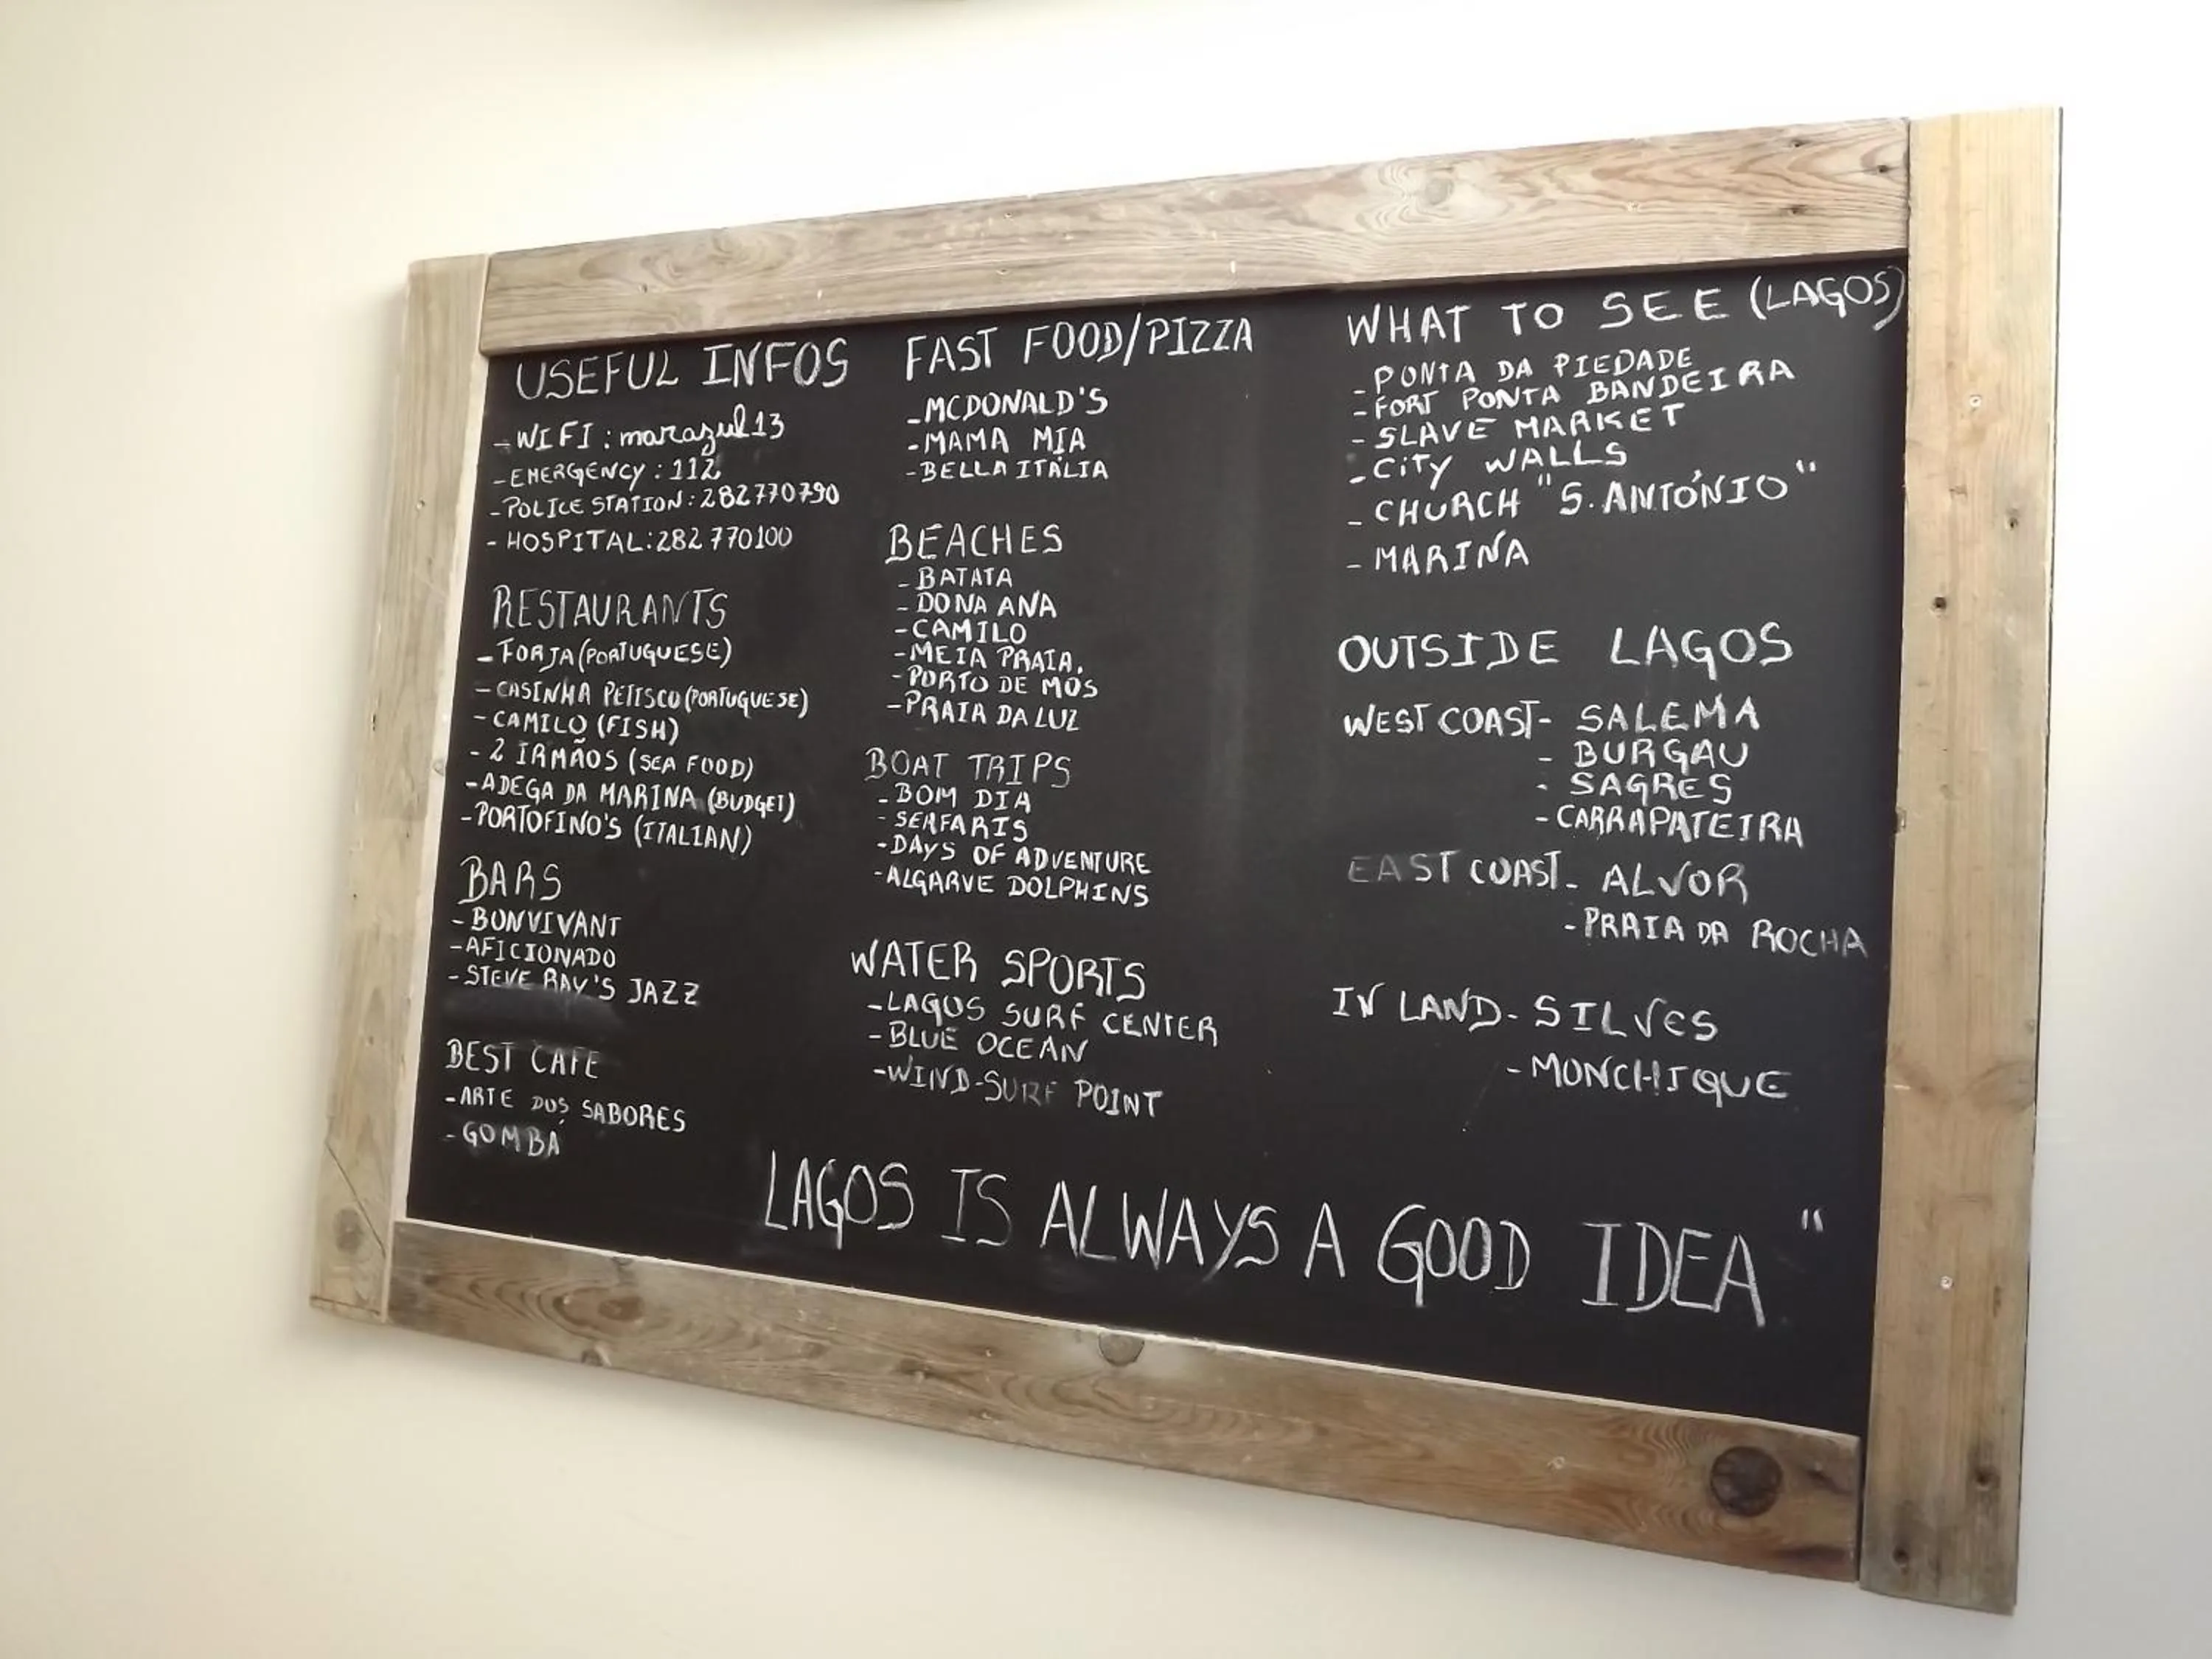 USEFUL INFOS
- WIFI : marazul13
- EMERGENCY : 112
- POLICE STATION : 282770790
- HOSPITAL : 282 770100
RESTAURANTS
- FORJA (PORTUGUESE)
- CASINHA PETISCO (PORTUGUESE)
- CAMILO (FISH)
- 2 IRMÃOS (SEA FOOD)
- ADEGA DA MARINA (BUDGET)
- PORTOFINO'S (ITALIAN)
BARS
- BONVIVANT
- AFICIONADO
- STEVE RAY'S JAZZ
BEST CAFE
- ARTE DOS SABORES
- GOMBÁ
FAST FOOD/PIZZA
- MCDONALD'S
- MAMA MIA
- BELLA ITÁLIA
BEACHES
- BATATA
- DONA ANA
- CAMILO
- MEIA PRAIA.
- PORTO DE MÓS
- PRAIA DA LUZ
BOAT TRIPS
- BOM DIA
- SEAFARIS
- DAYS OF ADVENTURE
- ALGARVE DOLPHINS
WATER SPORTS
- LAGOS SURF CENTER
- BLUE OCEAN
- WIND-SURF POINT
WHAT TO SEE (LAGOS)
- PONTA DA PIEDADE
- FORT PONTA BANDEIRA
- SLAVE MARKET
- CITY WALLS
- CHURCH "S. ANTÓNIO"
- MARINA
OUTSIDE LAGOS
WEST COAST - SALEMA
- BURGAU
- SAGRES
- CARRAPATEIRA
EAST COAST - ALVOR
- PRAIA DA ROCHA
IN LAND - SILVES
- MONCHIQUE
LAGOS IS ALWAYS A GOOD IDEA "